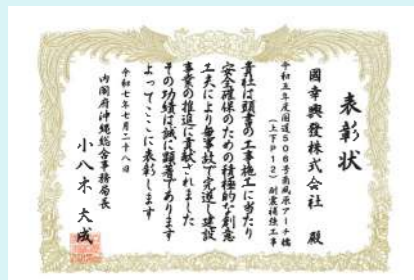 表彰状
國幸興發株式会社 殿
令和五年度国道506号南風原アーチ橋
(上下P12)耐震補強工事
貴社は頭書の工事施工に当たり
安全確保のための積極的な創意
工夫により無事故で完遂し建設
事業の推進に貢献されました
その功績は誠に顕著であります
よってここに表彰します
令和七年七月二十八日
内閣府沖縄総合事務局長
小八木大成